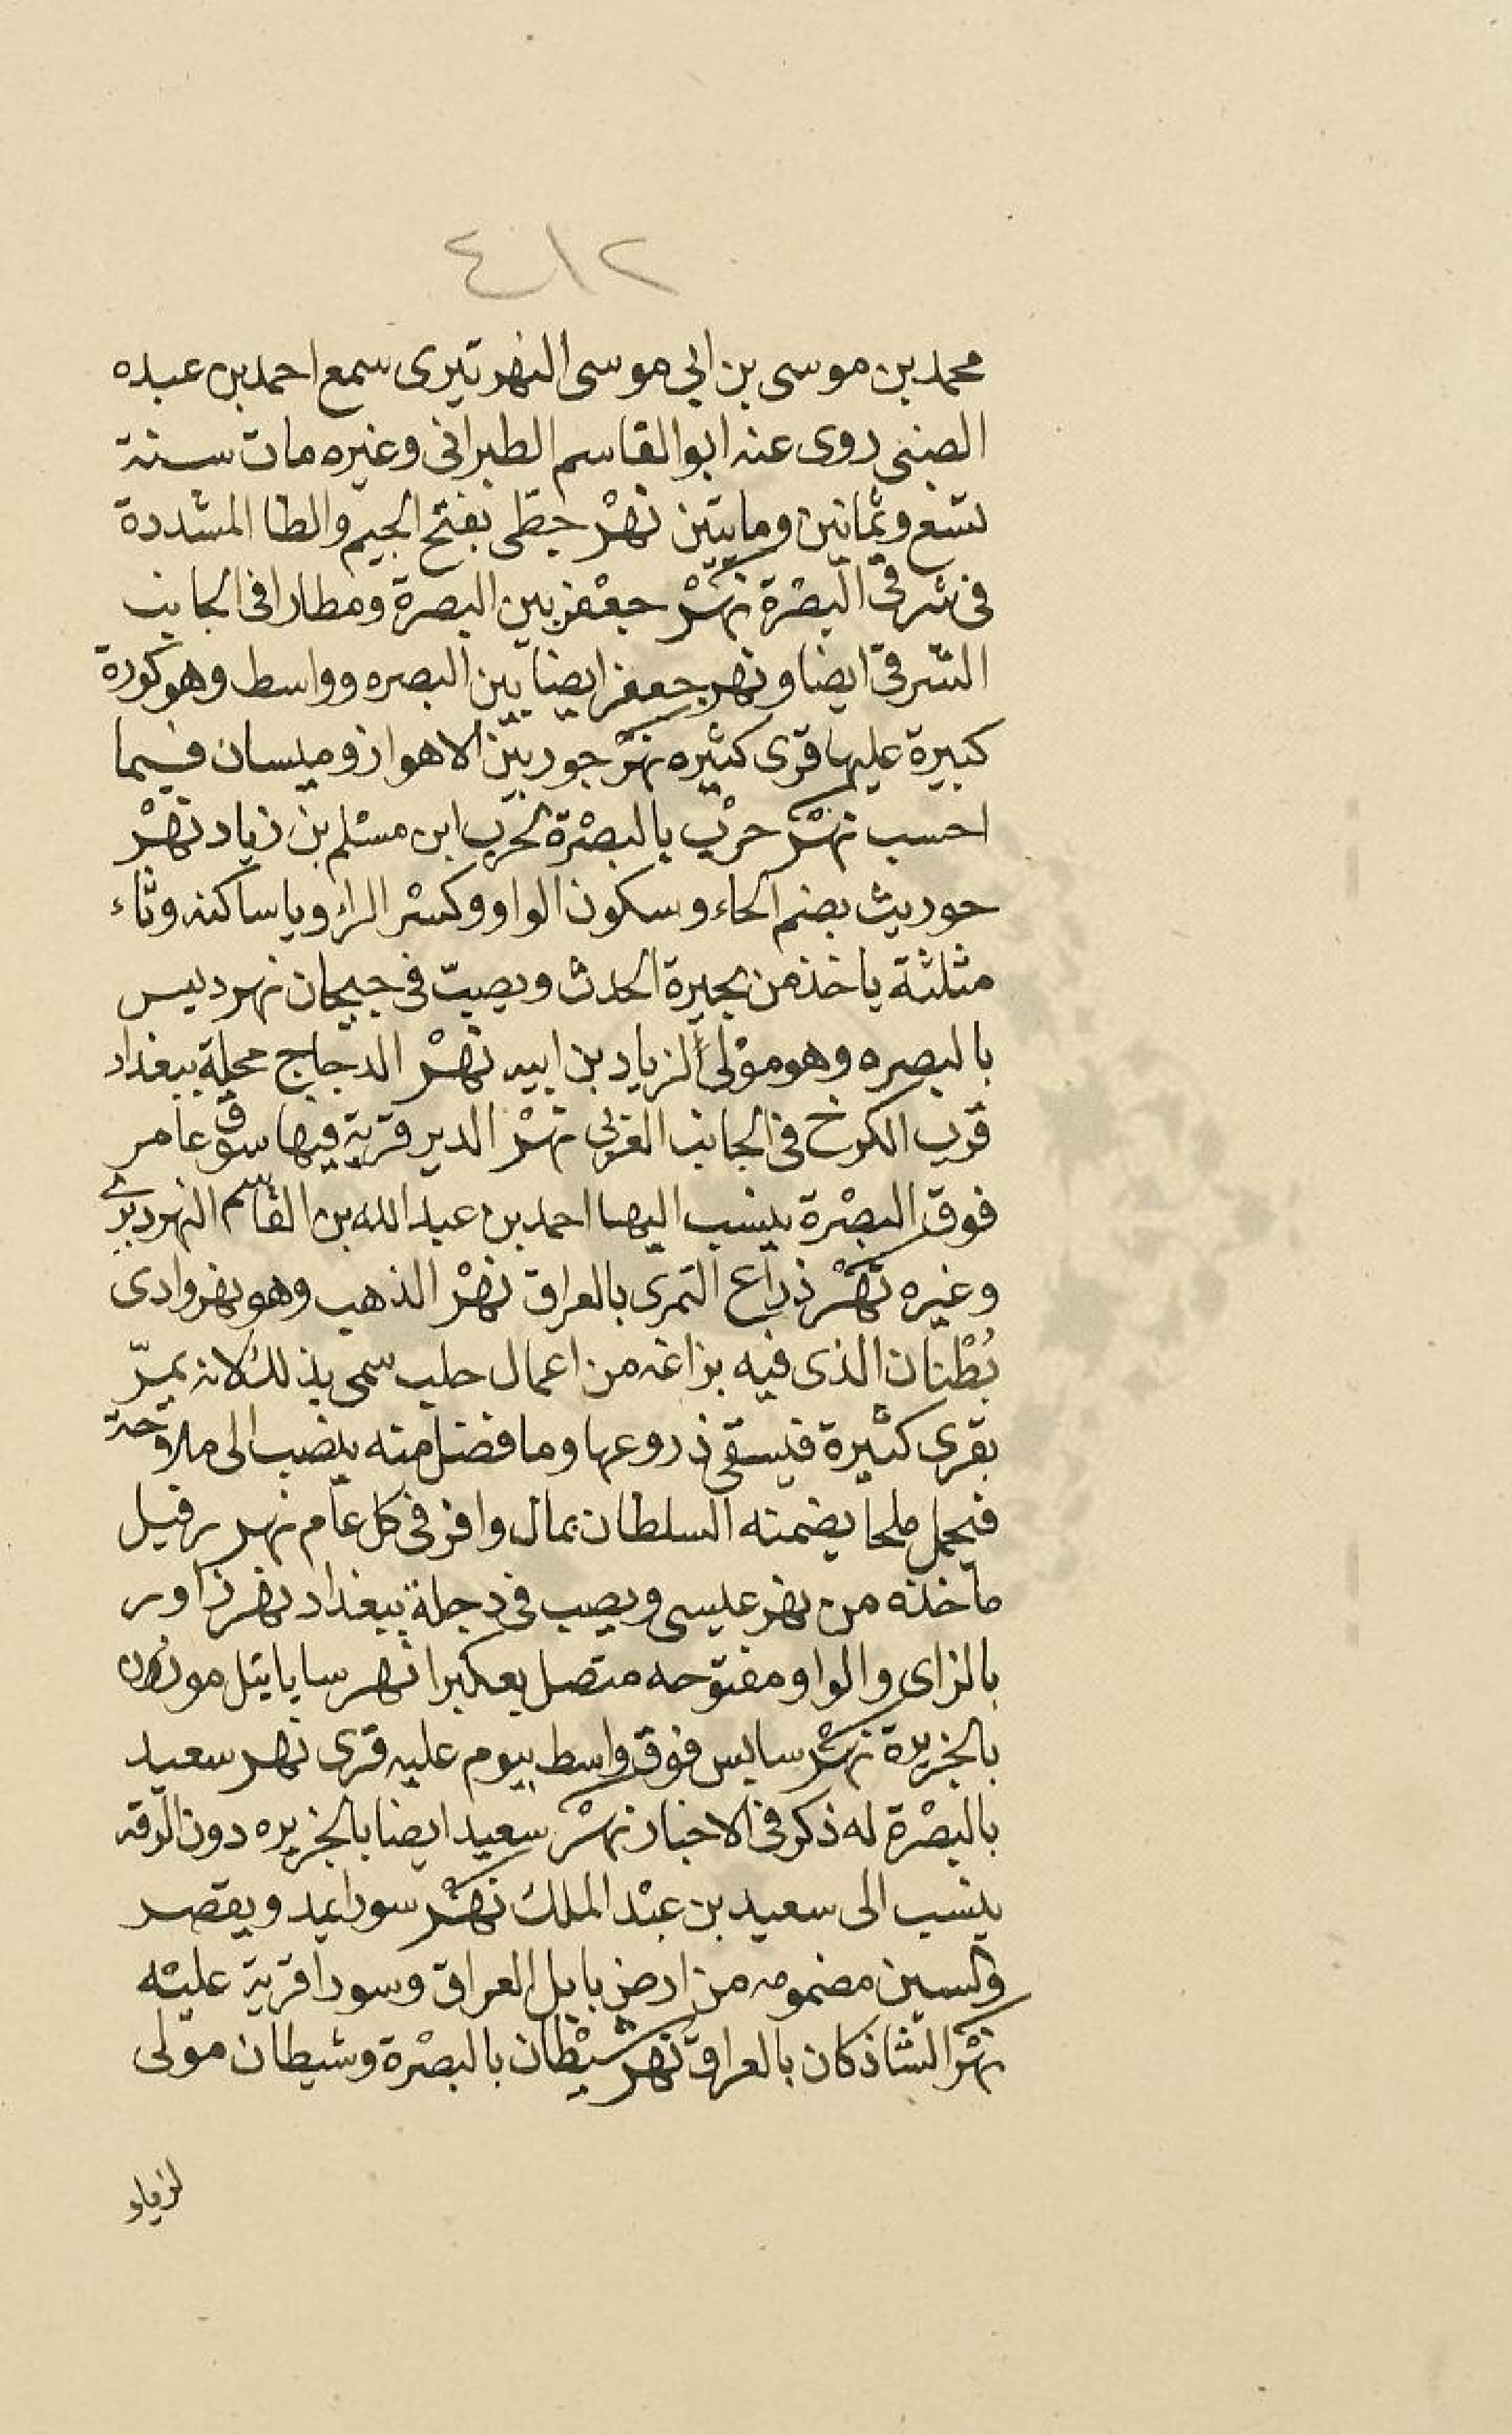 ٤١٢
محمد بن موسى بن ابي موسى النهر تيرى سمع احمد بن عبده
الضبى روى عنه ابو القاسم الطبرانى وغيره مات سنة
تسع وثمانين ومايتين نهْر جطّى بفتح الجيم والطا المشددة
فى شرقى البصْرة نهْر جعْفر بين البصرة ومطارا فى الجانب
الشرقىّ ايضا ونهر جعفر ايضا بين البصره وواسط وهو كورة
كبيرة عليها قرى كثيره نهْر جور بيْن الاهواز وميسان فيما
احسب نهْر حرْب بالبصْرة لحرْب ابن مسْلم بن زياد نهْر
حوريث بضم الحاء وسكون الواو وكسْر الراء ويا ساكنه وثاء
مثلثة ياخذ من بحيرة الحدث ويصبّ فى جيحان نهر دبيس
بالبصره وهو موْلى لزياد بن ابيه نهْر الدجاج محلة ببغداد
قرب الكرخ فى الجانب الغربى نهْر الدير قرية فيها سوق عامر
فوق البصْرة ينسب اليها احمد بن عبد الله بن القاسم النهرديرى
وغيره نهْر ذراع النمرى بالعراق نهْر الذهب وهو نهر وادى
بُطْنان الذى فيه بزاغه من اعمال حلب سمى بذلك لانه يمرّ
بقرى كثيرة فيسقى زروعها وما فضل منه ينصب الى ملاحة
فيحمل ملحا يضمنه السلطان بمال وافر فى كل عام نهر رفيل
ماخذه من نهر عيسى ويصب فى دجلة ببغداد نهر زاور
بالزاى والواو مفتوحه متصل بعكبرا نهر سابا بتل موزن
بالجزيرة نهْر سابس فوق واسط بيوم عليه قرى نهر سعيد
بالبصْرة له ذكر فى الاخبار نهْر سعيد ايضا بالجزيره دون الرقه
ينسب الى سعيد بن عبْد الملك نهْر سورا يمد ويقصر
والسين مضمومه من ارض بابل العراق وسورا قرية عليْه
نهْر الشاذكان بالعراق نهْر شيْطان بالبصْرة وشيطان مولى
لزياد